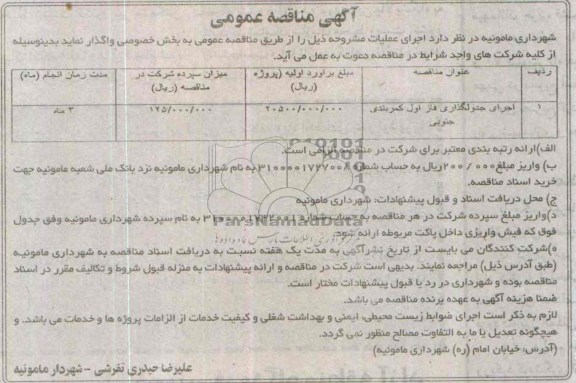 آگهی مناقصه عمومی
شهرداری مامونیه در نظر دارد اجرای عملیات مشروحه ذیل را از طریق مناقصه عمومی به بخش خصوصی واگذار نماید بدینوسیله
از کلیه شرکت های واجد شرایط در مناقصه دعوت به عمل می آید.
ردیف عنوان مناقصه مبلغ برآورد اولیه (پروژه (ریال) میزان سپرده شرکت در مناقصه (ریال) مدت زمان انجام (ماه)
۱ اجرای جدولگذاری فاز اول کمربندی جنوبی ۲۰۵۰۰/۰۰۰/۰۰۰ ۱۲۵/۰۰۰/۰۰۰ ۳ ماه
الف)ارائه رتبه بندی معتبر برای شرکت در مناقصه الزامی است.
ب) واریز مبلغ ۲۰۰/۰۰۰ ریال به حساب شماره به نام شهرداری مامونیه نزد بانک ملی شعبه مامونیه جهت
خرید اسناد مناقصه.
ج) محل دریافت اسناد و قبول پیشنهادات: شهرداری مامونیه
د)واریز مبلغ سپرده شرکت در هر مناقصه به حساب شماره به نام سپرده شهرداری مامونیه وفق جدول
فوق که فیش واریزی داخل پاکت مربوطه ارائه شود.
ه)شرکت کنندگان می بایست از تاریخ نشرآگهی به مدت یک هفته نسبت به دریافت اسناد مناقصه به شهرداری مامونیه
(طبق آدرس ذیل) مراجعه نمایند. بدیهی است شرکت در مناقصه و ارائه پیشنهادات به منزله قبول شروط و تکالیف مقرر در اسناد
مناقصه بوده و شهرداری در رد یا قبول پیشنهادات مختار است.
ضمنا هزینه آگهی به عهده برنده مناقصه می باشد.
لازم به ذکر است اجرای ضوابط زیست محیطی، ایمنی و بهداشت شغلی و کیفیت خدمات از الزامات پروژه ها و خدمات می باشد. و
هیچگونه تعدیل یا ما به التفاوت مصالح منظور نمی گردد.
(آدرس: خیابان امام (ره) شهرداری مامونیه)
علیرضا حیدری تفرشی - شهردار مامونیه
ParsNamadData